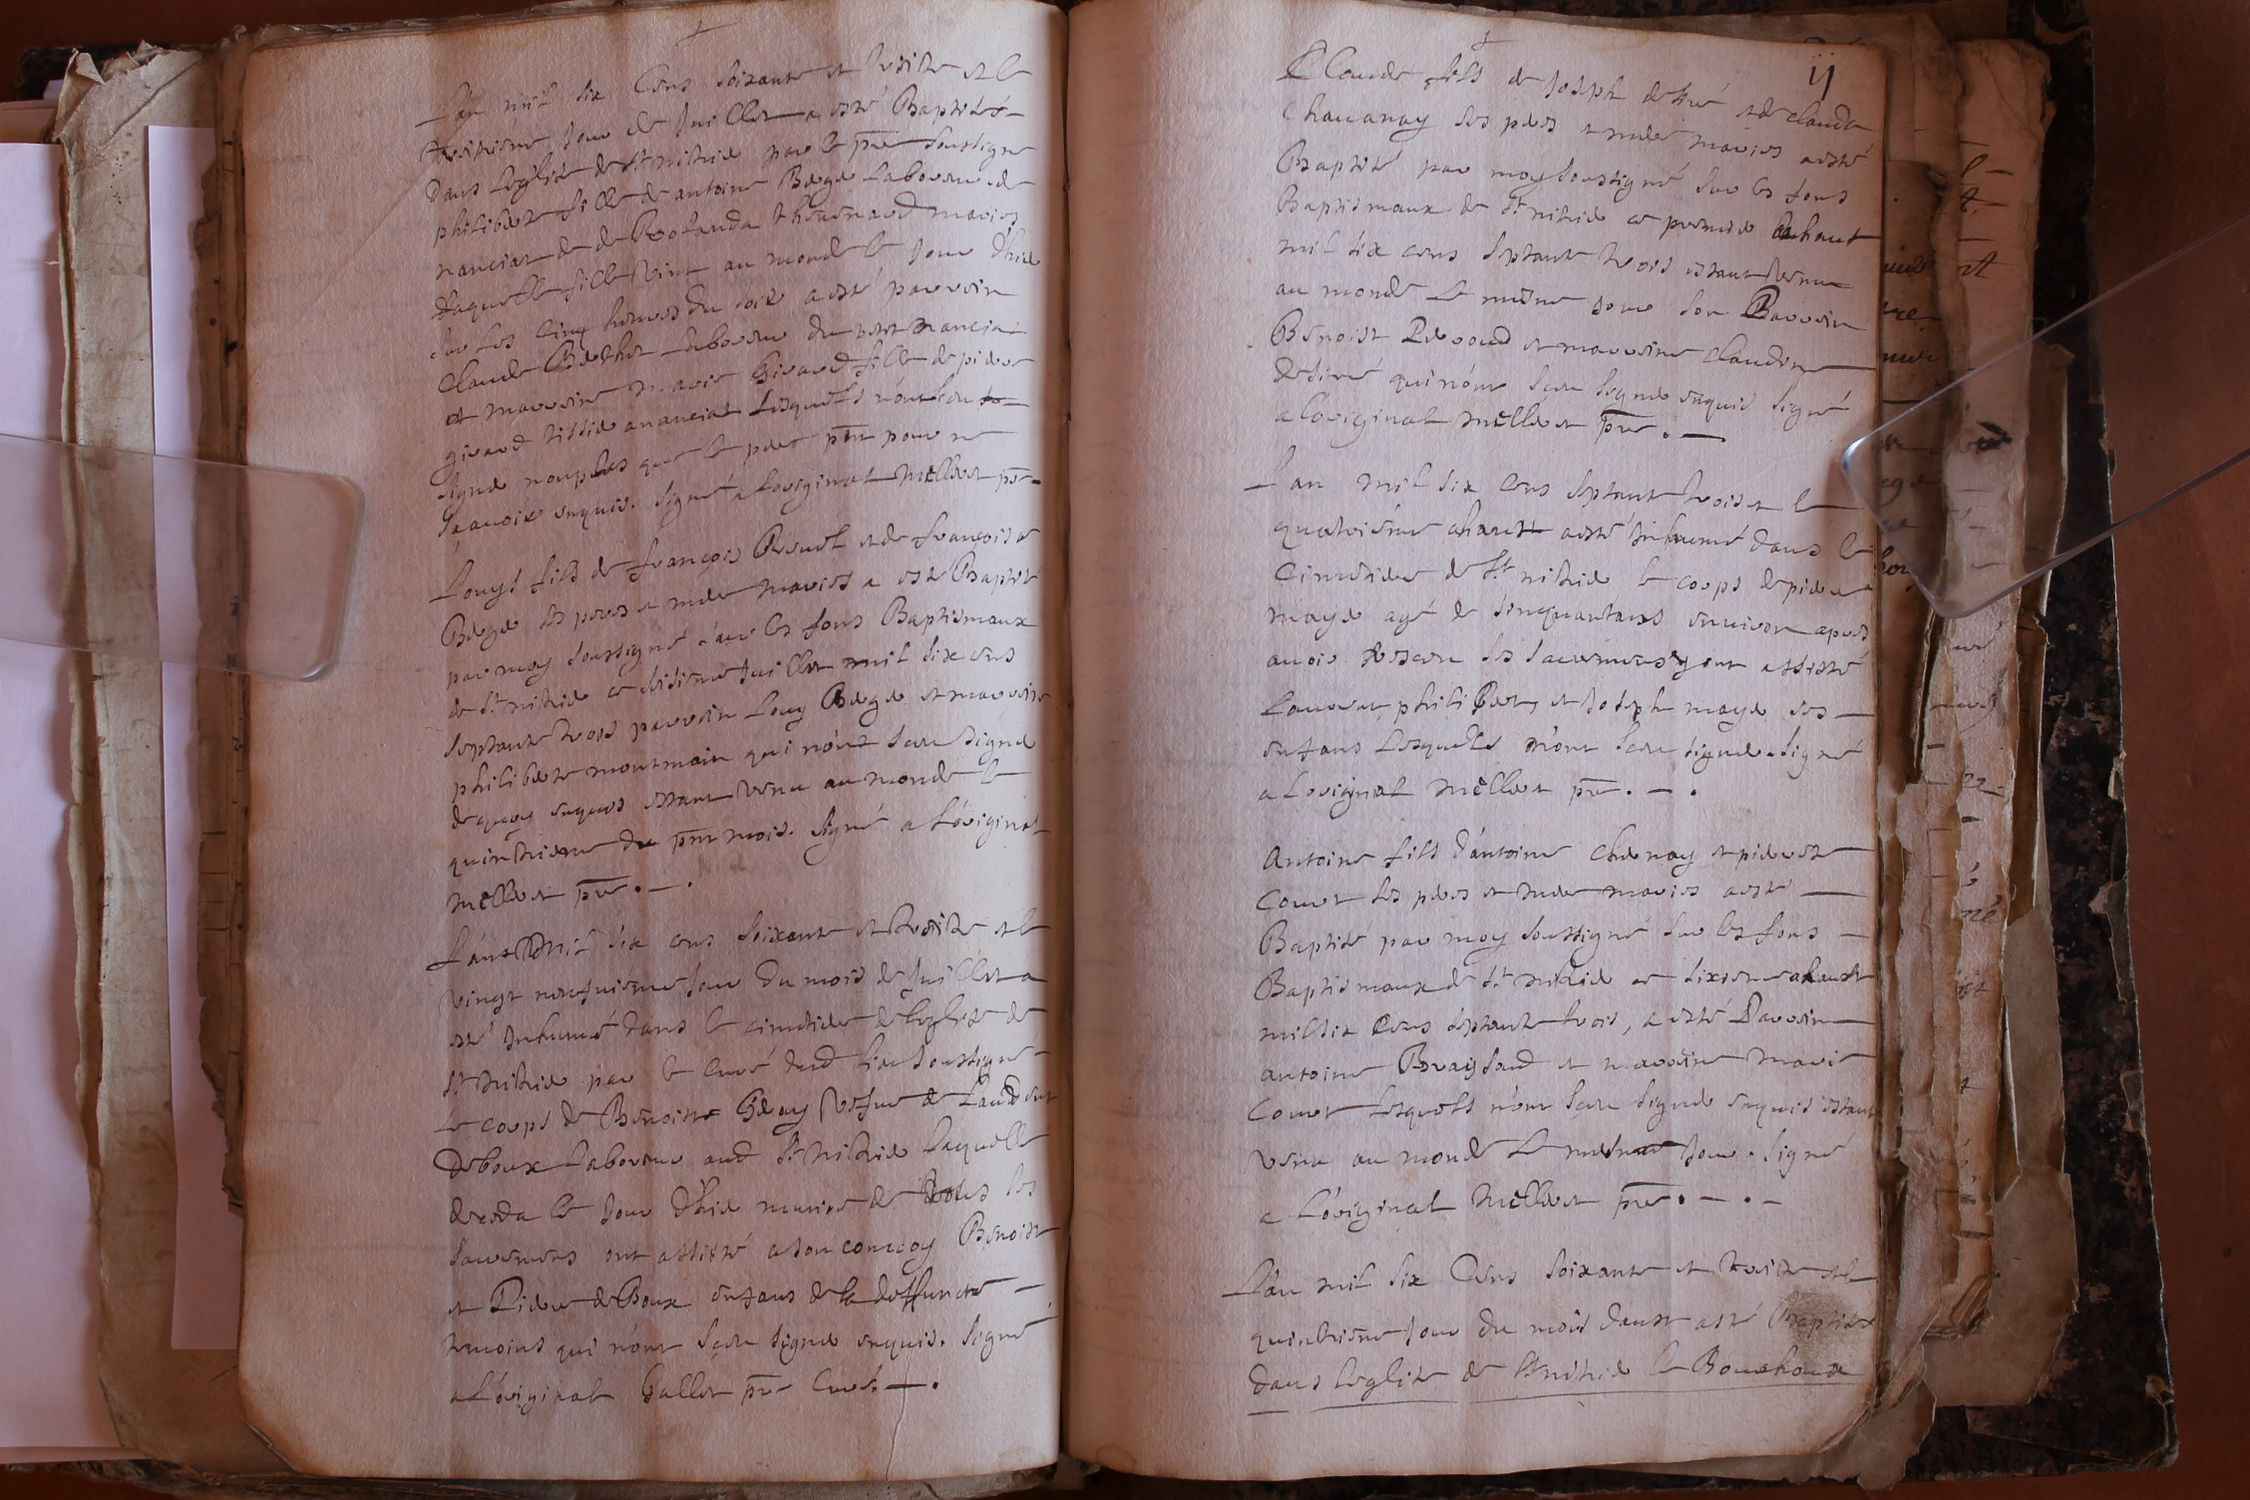 L'an mil six Cens soixante et treitze et le
treitzieme jour de Juillet a esté Baptisée
dans l'eglise de St nitzie par le pre soussigné
philiberte fille de antoine Berger laboureur de
nanciat de de Rolanda thevenard mariés
laquelle fille vint au monde le jour d'hier
sur les cinq heures du soir a esté parrein
Claude Berthet laboureur du dit nanciat
et marreine marie Girard fille de pierre
girard tissier a nanciat lesquels n'ont seu
signer non plus que le pere pnt pour ne
sçavoir enquis. signé a l'original mellret pre
Louys fils de françois Revel et de françoise
Berger ses peres et mere mariés a esté Baptisé
par moy soussigné sur les fons Baptismaux
de St nitzie ce seisieme Juillet mil six cens
septante trois parrein Louy Berger et marreine
philiberte montmain qui n'ont seu signer
de quoy enquis estant venu au monde le
quintzieme du pnt mois. signé a l'original
mellret pre. — .
L'an Mil six cens soixante et treitze et le
vingt neufvieme jour du mois de Juillet a
esté inhumé dans le cimetiere de l'eglise de
St nitzie par le curé dud lieu soussigné
le corps de Benoitte Geay vefve de
deboux laboureur aud St nitzie laquelle
deceda le jour d'hier munie de tous les
sacremens ont assisté a son convoy Benoist
et Pierre deBoux enfans de la deffuncte —
temoins qui n'ont seu signer enquis. signé
a l'original Gallet pre Curé —.
11
Claude fils de Joseph desiré et de claude
Chavanay ses peres et mere mariés a esté
Baptisé par moy soussigné sur les fons
Baptismaux de St nitzie ce premier
mil six cens septante trois estant venu
au monde le mesme jour son Parrein
Benoist Revoud et marreine claudine
desiré qui n'ont seu signer enquis signé
a l'original mellret pre. —
L'an mil six cens septante trois et le
quatrieme ahaust a esté inhumé dans le
Cimetiere de St nitzie le corps de pierre
moyer agé de cinquantans environ apres
avoir receu ses sacremens y ont assisté
Laurent, philibert, et Joseph moyer ses —
enfans lesquels n'ont seu signer. signé
a l'original mellret pre. — .
Antoine fils d'antoine Chernay et pierrette
Couvet ses peres et mere mariés a esté —
Baptisé par moy soussigné sur les fons —
Baptismaux de St nitzie ce sixieme ahaust
mil six cens septante trois, a esté Parrein —
antoine Braysaud et marreine marie
Couvet lesquels n'ont seu signer enquis estant
venu au monde le mesme jour. signé
a l'original mellret pre. — . —
L'an mil six Cens soixante et treitze et le
quintzieme jour du mois daust a esté Baptisé
dans l'eglise de St nitzie le Bouchoux